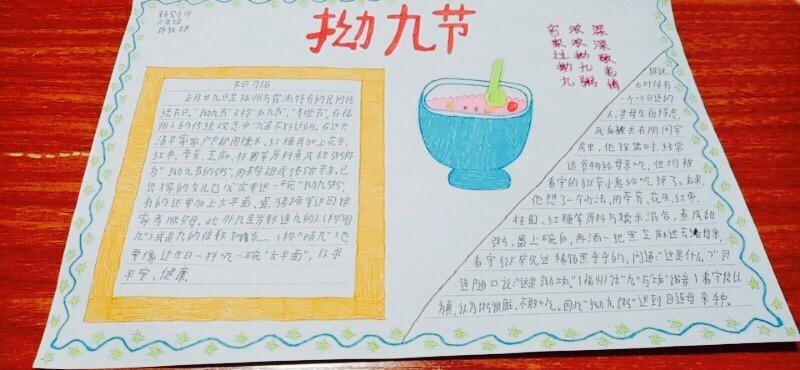 六年级
拗九节
深深敬老情
浓浓拗九粥
家过拗九
节日习俗
正月廿九日是福州特有的民间传统
节日，“拗九节”又称“后九节”、“孝顺节”，在福
州人的传统观念中“九”是不好的。在这天
清早家家户户都用糯米、红糖，再加上花生、
红枣、荸荠、芝麻、桂圆等原料煮成甜粥，称
为“拗九节的粥”，用来祭祖或馈赠亲友。已
出嫁的女儿也必定要送一碗“拗九粥”，
有的还要加上太平面、蛋、猪蹄等送回娘
家孝顺父母。此外凡是岁数逢九的人(称“明
九”)或是九的倍数（称“暗九”)也
要像过生日一样吃一碗“太平面”，以求
平安、健康
据说
古时候有
一个叫目连的
人，其母生前
死后被关在阴间牢
房里，他探监时，经常
送食物给母亲吃，但均被
看守的狱卒小鬼给吃掉了。后来，
他想了一个办法，用荸荠、花生、红枣、
桂圆、红糖等原料与糯米混合，煮成甜
粥，盛上碗后，再洒一把黑芝麻送去给母亲，
看守狱卒见这稀饭黑乎乎的，问道：“这是什么？”目
连随口说：“这是拗垢。”（福州话“九”与“垢”谐音）看守信以
为真，认为粥很脏，不敢吃。因此“拗九粥”送到目连母亲手